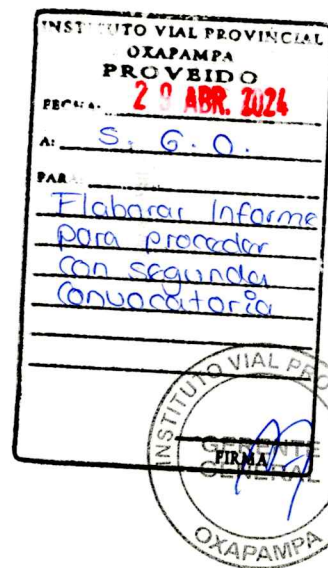 INSTITUTO VIAL PROVINCIAL
OXAPAMPA
PROVEIDO
FECHA: 29 ABR. 2024
A: S. G. O.
PARA
Elaborar Informe
para proceder
con segunda
convocatoria
INSTITUTO VIAL PRO
GERENTE
GENERAL
FIRMA
OXAPAMPA